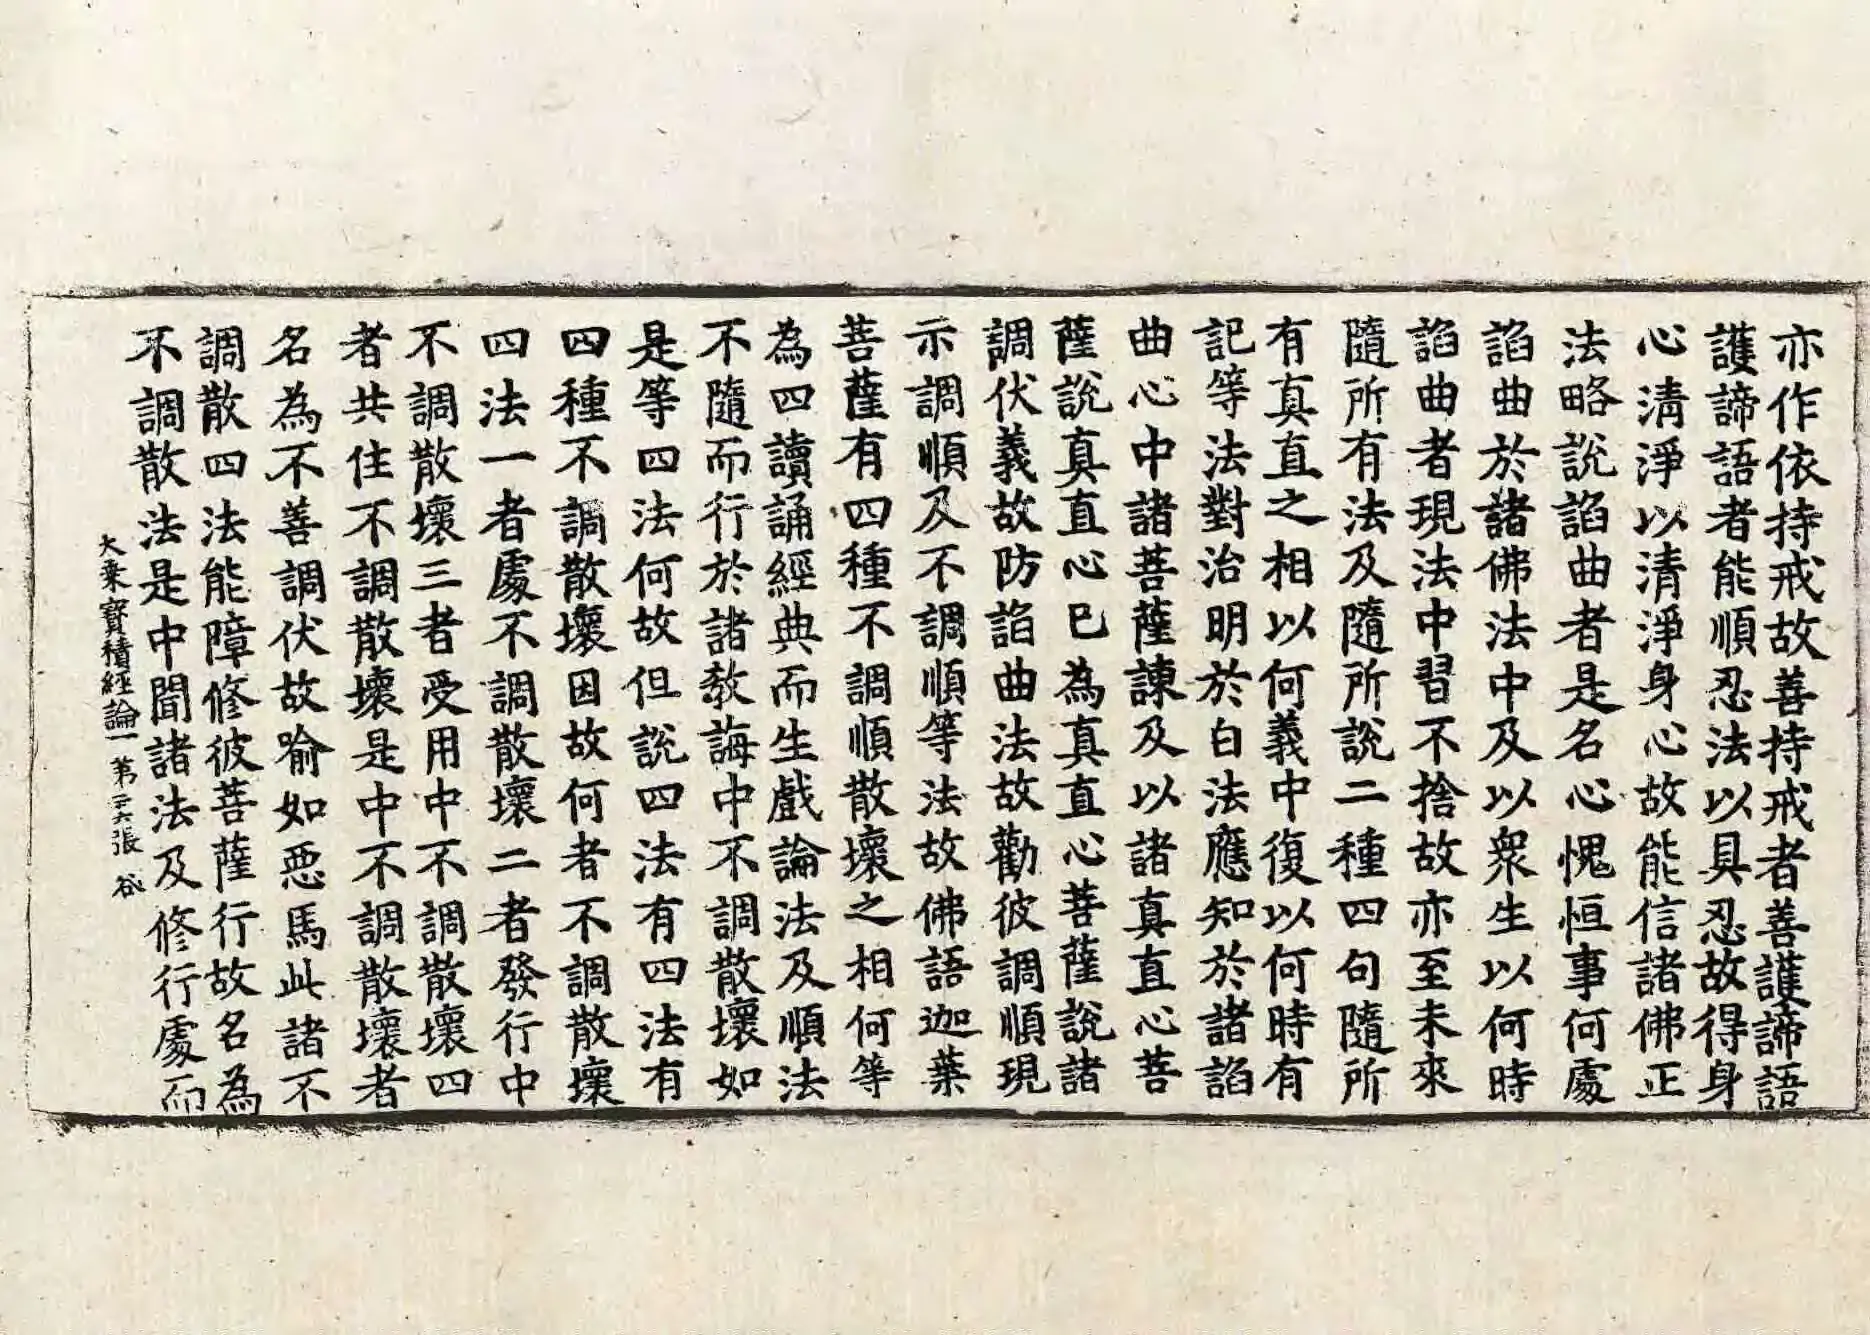 亦作依持戒故善持戒者善護諦語
護諦語者能順忍法以具忍故得身
心清淨以清淨身心故能信諸佛正
法略說諂曲者是名心愧恒事何處
諂曲於諸佛法中及以衆生以何時
諂曲者現法中習不捨故亦至未來
隨所有法及隨所說二種四句隨所
有真直之相以何義中復以何時有
記等法對治明於白法應知於諸諂
曲心中諸菩薩諫及以諸真直心菩
薩說真直心已為真直心菩薩說諸
調伏義故防諂曲法故勸彼調順現
示調順及不調順等法故佛語迦葉
菩薩有四種不調順散壞之相何等
為四讀誦經典而生戲論法及順法
不隨而行於諸教誨中不調散壞如
是等四法何故但說四法有四法有
四種不調散壞因故何者不調散壞
四法一者處不調散壞二者發行中
不調散壞三者受用中不調散壞四
者共住不調散壞是中不調散壞者
名為不善調伏故喻如惡馬此諸不
調散四法能障修彼菩薩行故名為
不調散法是中聞諸法及修行處而
大乗寶積經論一 第三六張 谷